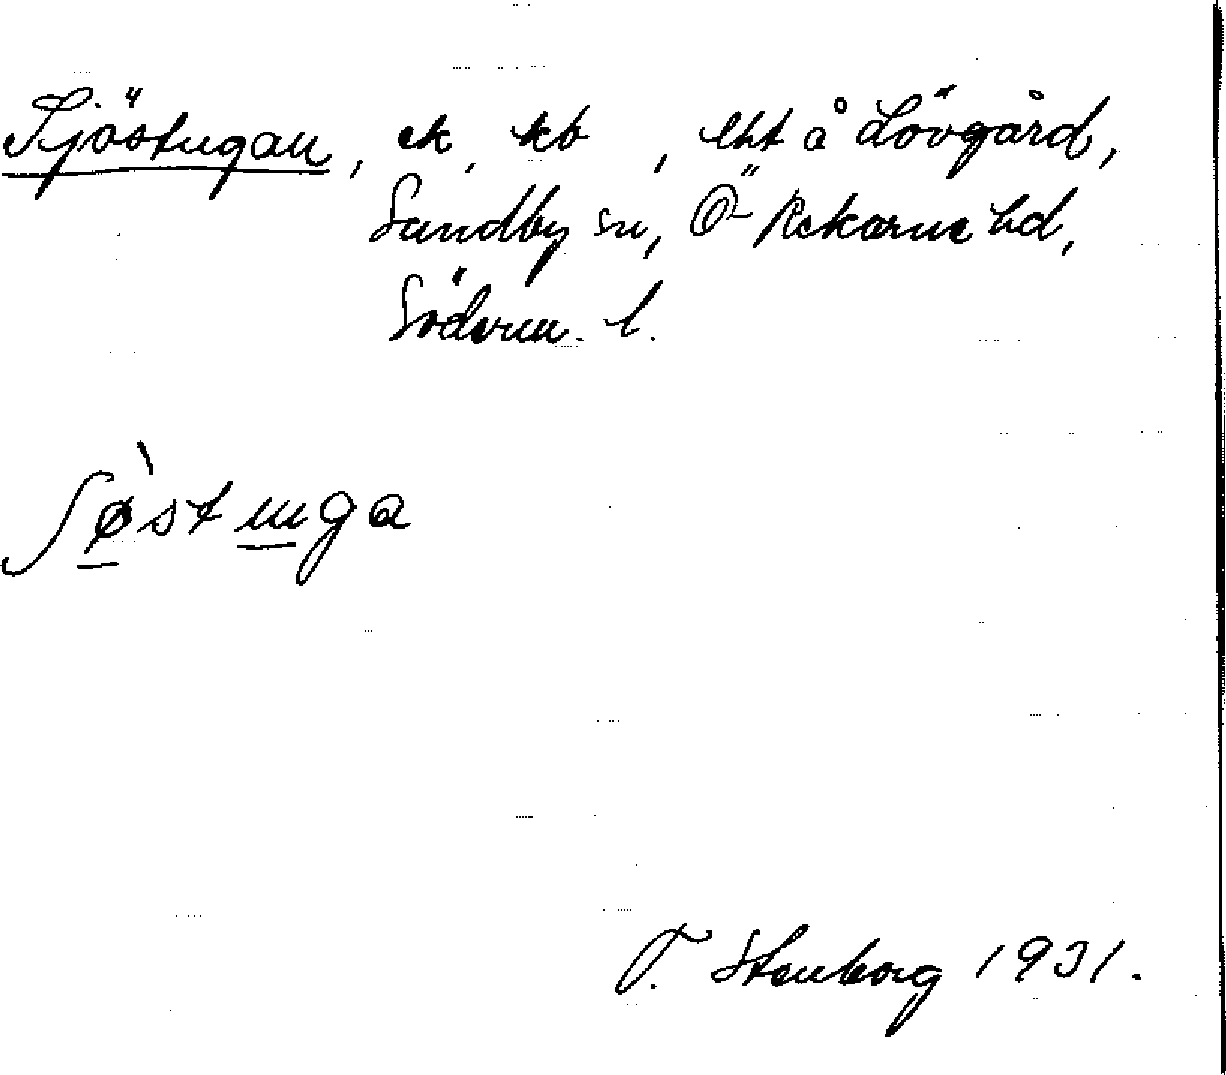 Sjöstugan, ek, kb , lht å Lövgård,
Sundby sn, Ö Rekarne hd,
Söderm. l.
ʃø̀stuga
T. Stenborg 1931.